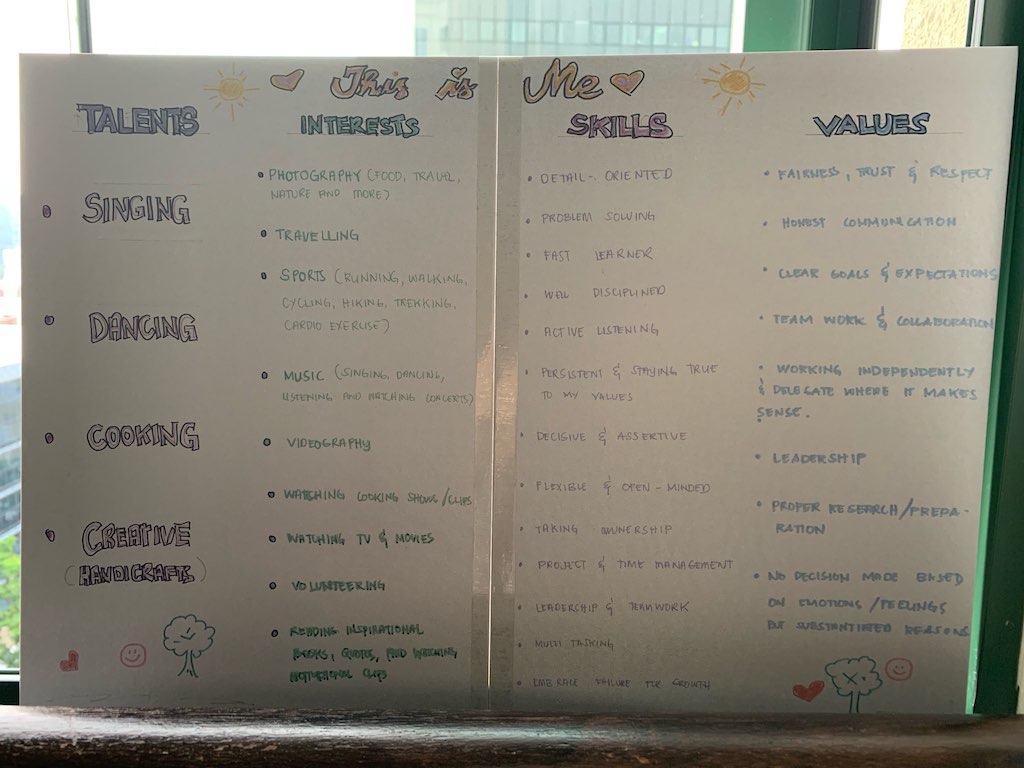 This is Me
TALENTS
SINGING
DANCING
COOKING
CREATIVE
(HANDICRAFTS)
INTERESTS
PHOTOGRAPHY (FOOD, TRAVEL,
NATURE AND MORE)
TRAVELLING
SPORTS (RUNNING, WALKING,
CYCLING, HIKING, TREKKING,
CARDIO EXERCISE)
MUSIC (SINGING, DANCING,
LISTENING AND WATCHING CONCERTS)
VIDEOGRAPHY
WATCHING COOKING SHOWS/CLIPS
WATCHING TV & MOVIES
VOLUNTEERING
READING INSPIRATIONAL
BOOKS, QUOTES, AND WATCHING
MOTIVATIONAL CLIPS
SKILLS
DETAIL-ORIENTED
PROBLEM SOLVING
FAST LEARNER
WELL DISCIPLINED
ACTIVE LISTENING
PERSISTENT & STAYING TRUE
TO MY VALUES
DECISIVE & ASSERTIVE
FLEXIBLE & OPEN-MINDED
TAKING OWNERSHIP
PROJECT & TIME MANAGEMENT
LEADERSHIP & TEAMWORK
MULTI TASKING
EMBRACE FAILURE FOR GROWTH
VALUES
FAIRNESS, TRUST & RESPECT
HONEST COMMUNICATION
CLEAR GOALS & EXPECTATIONS
TEAM WORK & COLLABORATION
WORKING INDEPENDENTLY
& DELEGATE WHERE IT MAKES
SENSE.
LEADERSHIP
PROPER RESEARCH/PREPA-
RATION
NO DECISION MADE BASED
ON EMOTIONS/FEELINGS
BUT SUBSTANTIATED REASONS